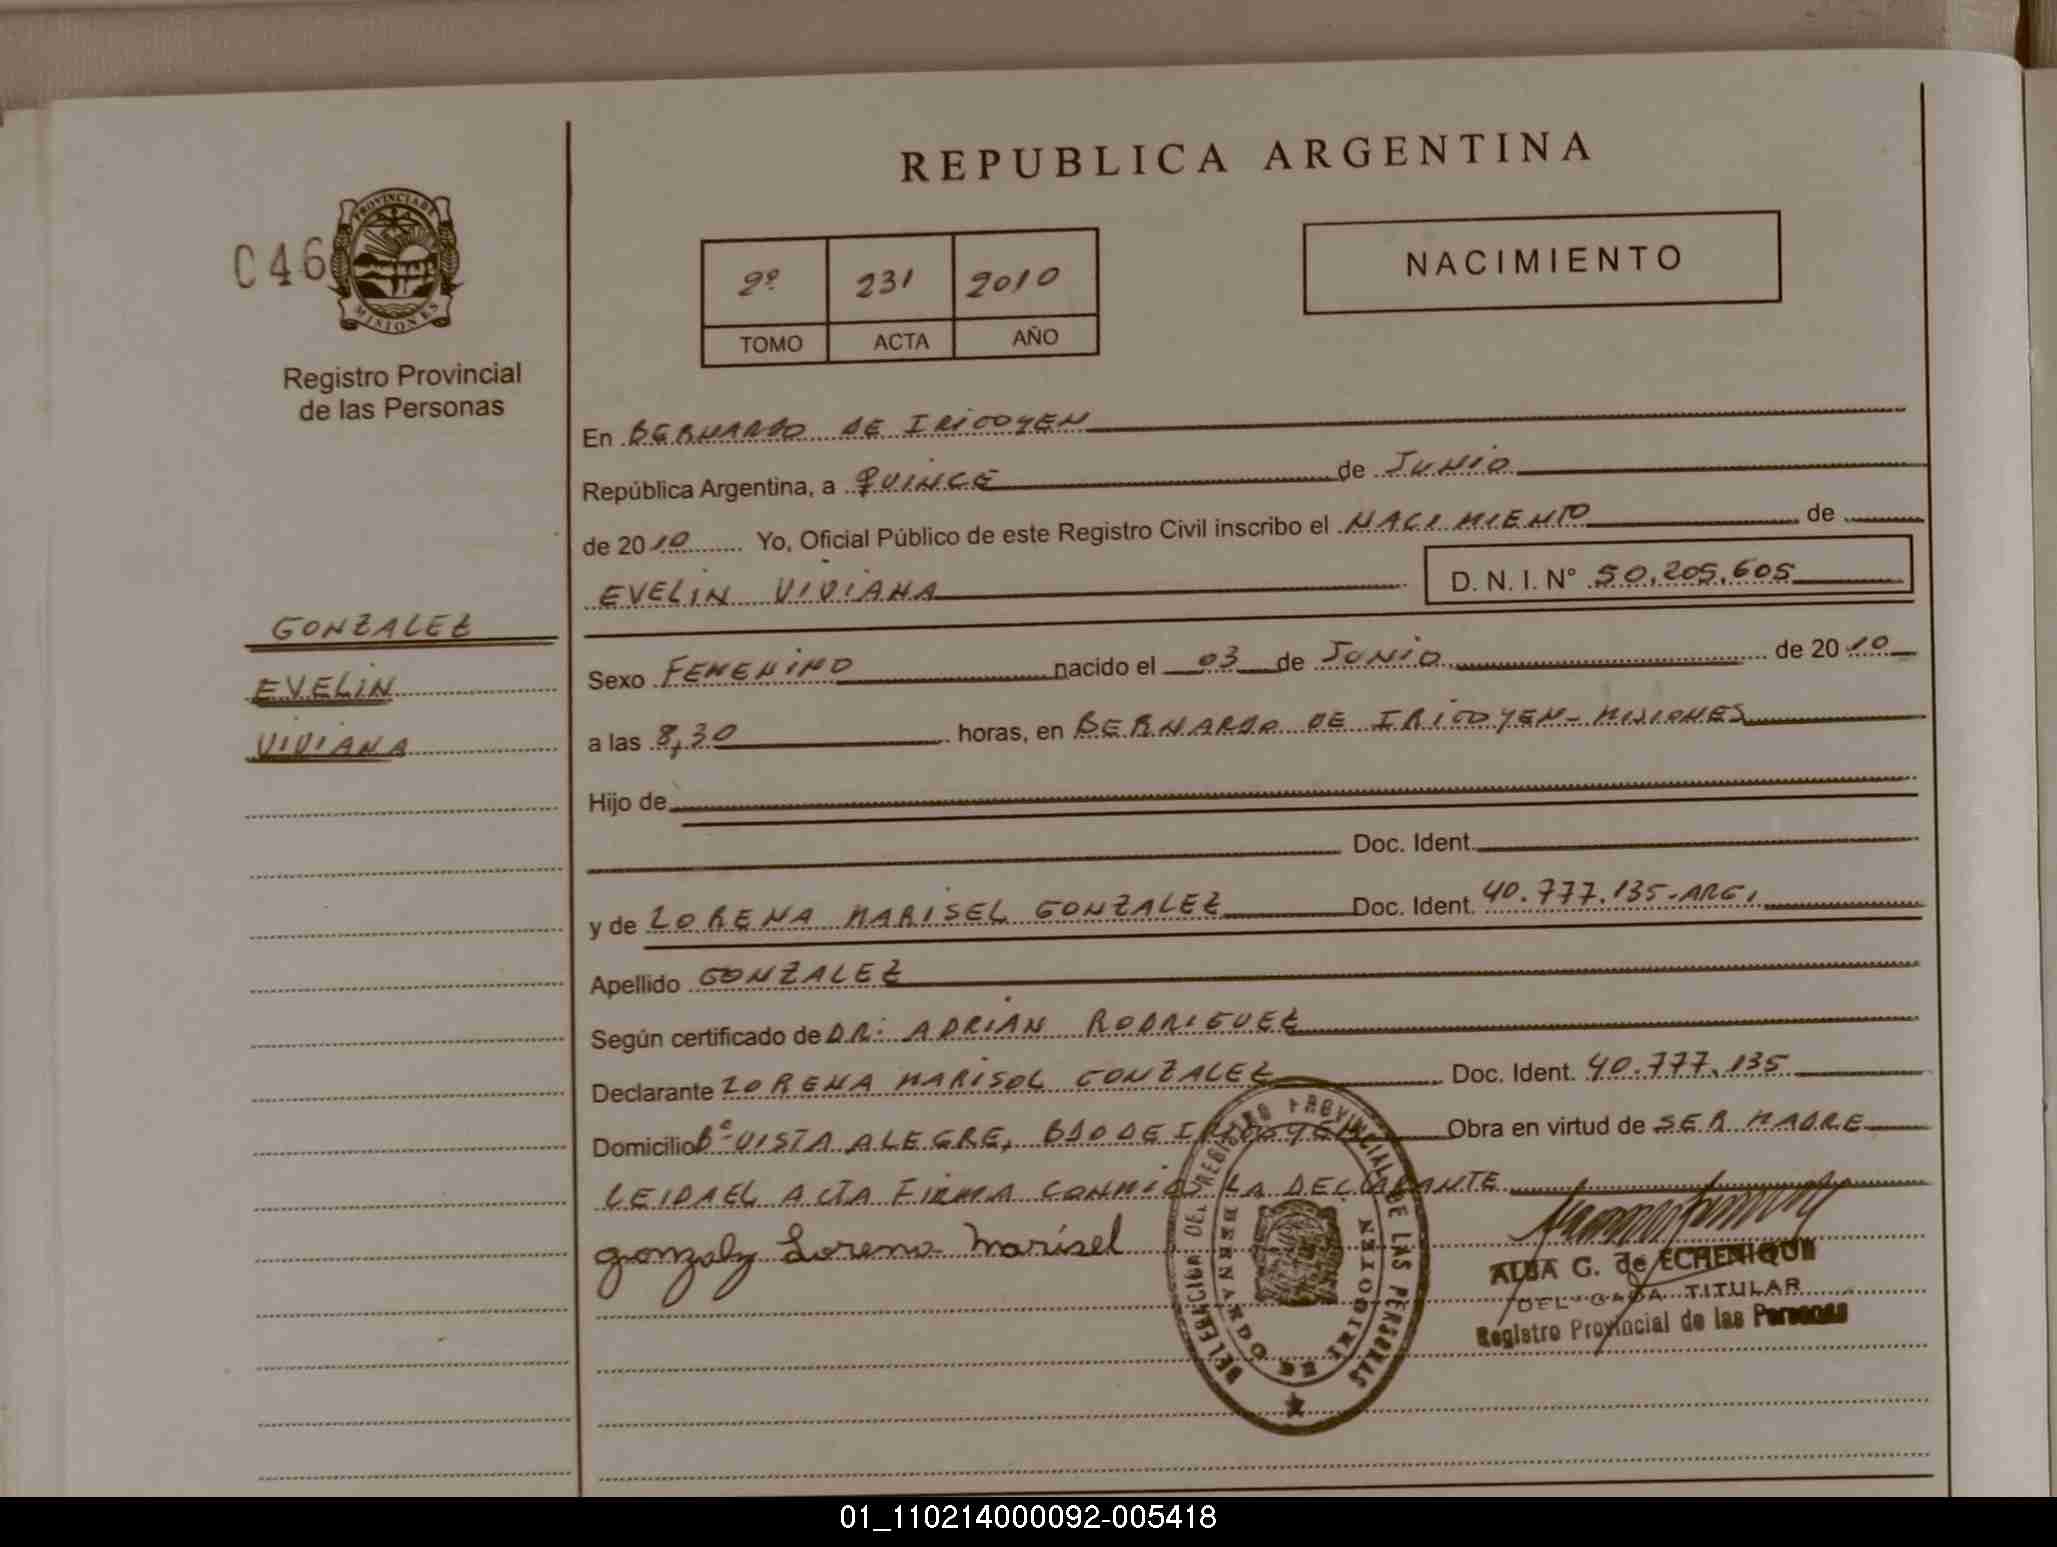 REPUBLICA ARGENTINA
C46
PROVINCIA DE
MISIONES
Registro Provincial
de las Personas
2º 231 2010
TOMO ACTA AÑO
NACIMIENTO
En BERNARDO DE IRIGOYEN
República Argentina, a QUINCE de JUNIO
de 2010 Yo, Oficial Público de este Registro Civil inscribo el NACIMIENTO de
EVELIN VIVIANA D. N. I. N° 50.205.605
GONZALEZ
EVELIN
VIVIANA
Sexo FEMENINO nacido el 03 de JUNIO de 2010
a las 8,30 horas, en BERNARDO DE IRIGOYEN - MISIONES
Hijo de
Doc. Ident.
y de LORENA MARISEL GONZALEZ Doc. Ident. 40.777.135-ARG.
Apellido GONZALEZ
Según certificado de DR. ADRIAN RODRIGUEZ
Declarante LORENA MARISOL GONZALEZ Doc. Ident. 40.777.135
Domicilio Bº VISTA ALEGRE, BDO DE IRIGOYEN Obra en virtud de SER MADRE
LEIDA EL ACTA FIRMA CONMIGO LA DECLARANTE
Gonzalz Lorena Marisel
DELEGACION DEL REGISTRO PROVINCIAL DE LAS PERSONAS
BERNARDO DE IRIGOYEN
ALBA G. de ECHENIQUE
DELEGADA TITULAR
Registro Provincial de las Personas
01_110214000092-005418